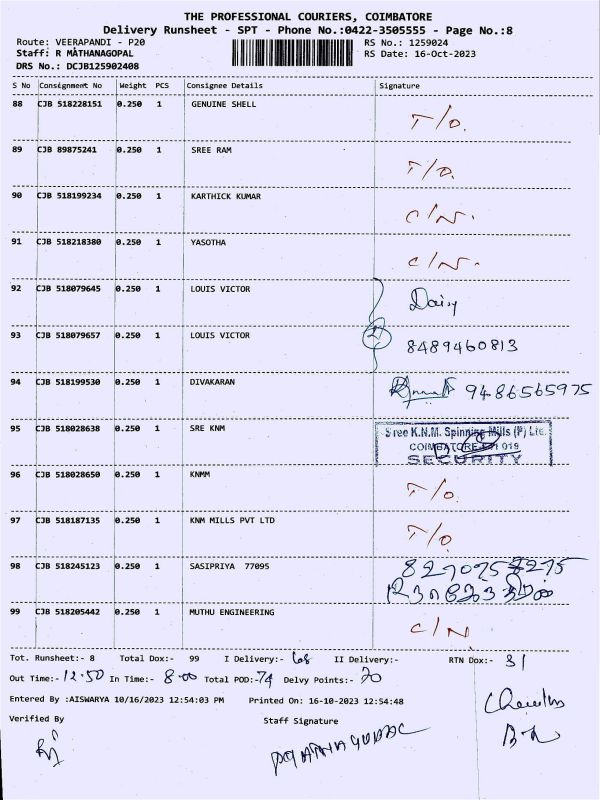 THE PROFESSIONAL COURIERS, COIMBATORE
Delivery Runsheet - SPT - Phone No.:0422-3505555 - Page No.:8
Route: VEERAPANDI - P20 RS No.: 1259024
Staff: R MATHANAGOPAL RS Date: 16-Oct-2023
DRS No.: DCJB125902408
S No Consignment No Weight PCS Consignee Details Signature
88 CJB 518228151 0.250 1 GENUINE SHELL T/O.
89 CJB 89875241 0.250 1 SREE RAM T/O.
90 CJB 518199234 0.250 1 KARTHICK KUMAR C/N.
91 CJB 518218380 0.250 1 YASOTHA C/N.
92 CJB 518079645 0.250 1 LOUIS VICTOR Daisy
93 CJB 518079657 0.250 1 LOUIS VICTOR 2 8489460813
94 CJB 518199530 0.250 1 DIVAKARAN 9486565975
95 CJB 518028638 0.250 1 SRE KNM Sree K.N.M. Spinning Mills (P) Ltd.
COIMBATORE-641 019
SECURITY
96 CJB 518028650 0.250 1 KNMM T/O.
97 CJB 518187135 0.250 1 KNM MILLS PVT LTD T/O
98 CJB 518245123 0.250 1 SASIPRIYA 77095 8270757275
99 CJB 518205442 0.250 1 MUTHU ENGINEERING C/N.
Tot. Runsheet:- 8 Total Dox:- 99 I Delivery:- 68 II Delivery:- RTN Dox:- 31
Out Time:- 12.50 In Time:- 8.00 Total POD:- 74 Delvy Points:- 70
Entered By :AISWARYA 10/16/2023 12:54:03 PM Printed On: 16-10-2023 12:54:48
Verified By Staff Signature